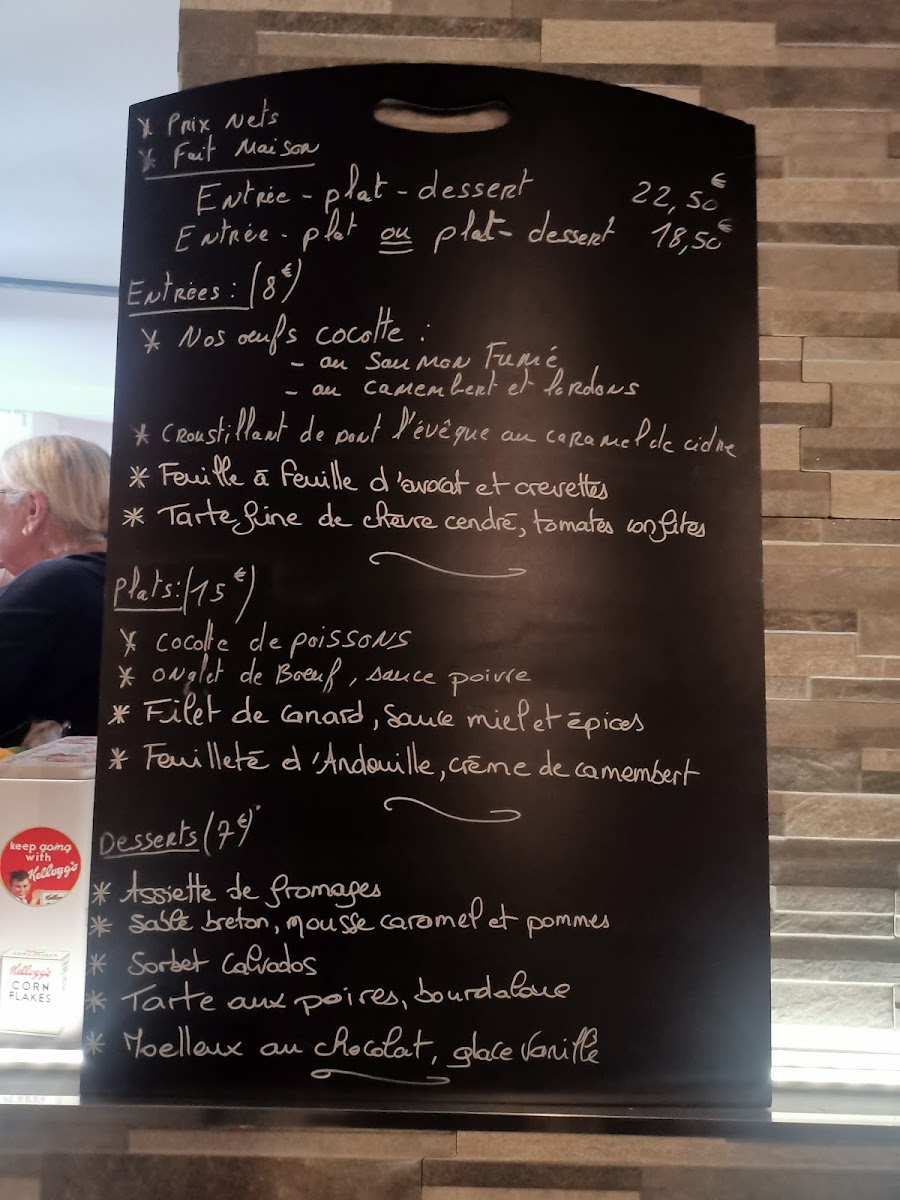 * Prix Nets
* Fait Maison
Entrée - plat - dessert 22,50€
Entrée - plat ou plat - dessert 18,50€
Entrées : (8€)
* Nos oeufs cocotte :
- au Saumon Fumé
- au camembert et lardons
* Croustillant de pont l'évêque au caramel de cidre
* Feuille à feuille d'avocat et crevettes
* Tarte fine de chèvre cendré, tomates confites
Plats : (15€)
* Cocotte de poissons
* Onglet de Boeuf, sauce poivre
* Filet de canard, sauce miel et épices
* Feuilleté d'Andouille, crème de camembert
Desserts (7€)
* Assiette de fromages
* Sablé breton, mousse caramel et pommes
* Sorbet Calvados
* Tarte aux poires, bourdaloue
* Moelleux au chocolat, glace vanille
keep going
with
Kellogg's
Kellogg's
CORN
FLAKES